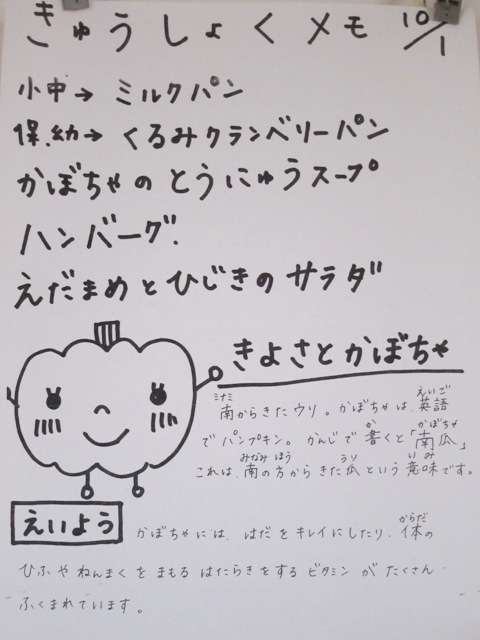 きゅうしょくメモ 10/1
小中→ ミルクパン
保.幼→ くるみクランベリーパン
かぼちゃの とうにゅうスープ
ハンバーグ.
えだまめとひじきの サラダ
きよさとかぼちゃ
ミナミ えいご
南からきたウリ。かぼちゃは、英語
か かぼちゃ
でパンプキン。かんじで書くと「南瓜」
みなみ ほう うり いみ
これは、南の方からきた瓜という意味です。
えいよう
からだ
かぼちゃには、はだをキレイにしたり、体の
ひふやねんまくをまもるはたらきをするビタミンがたくさん
ふくまれています。